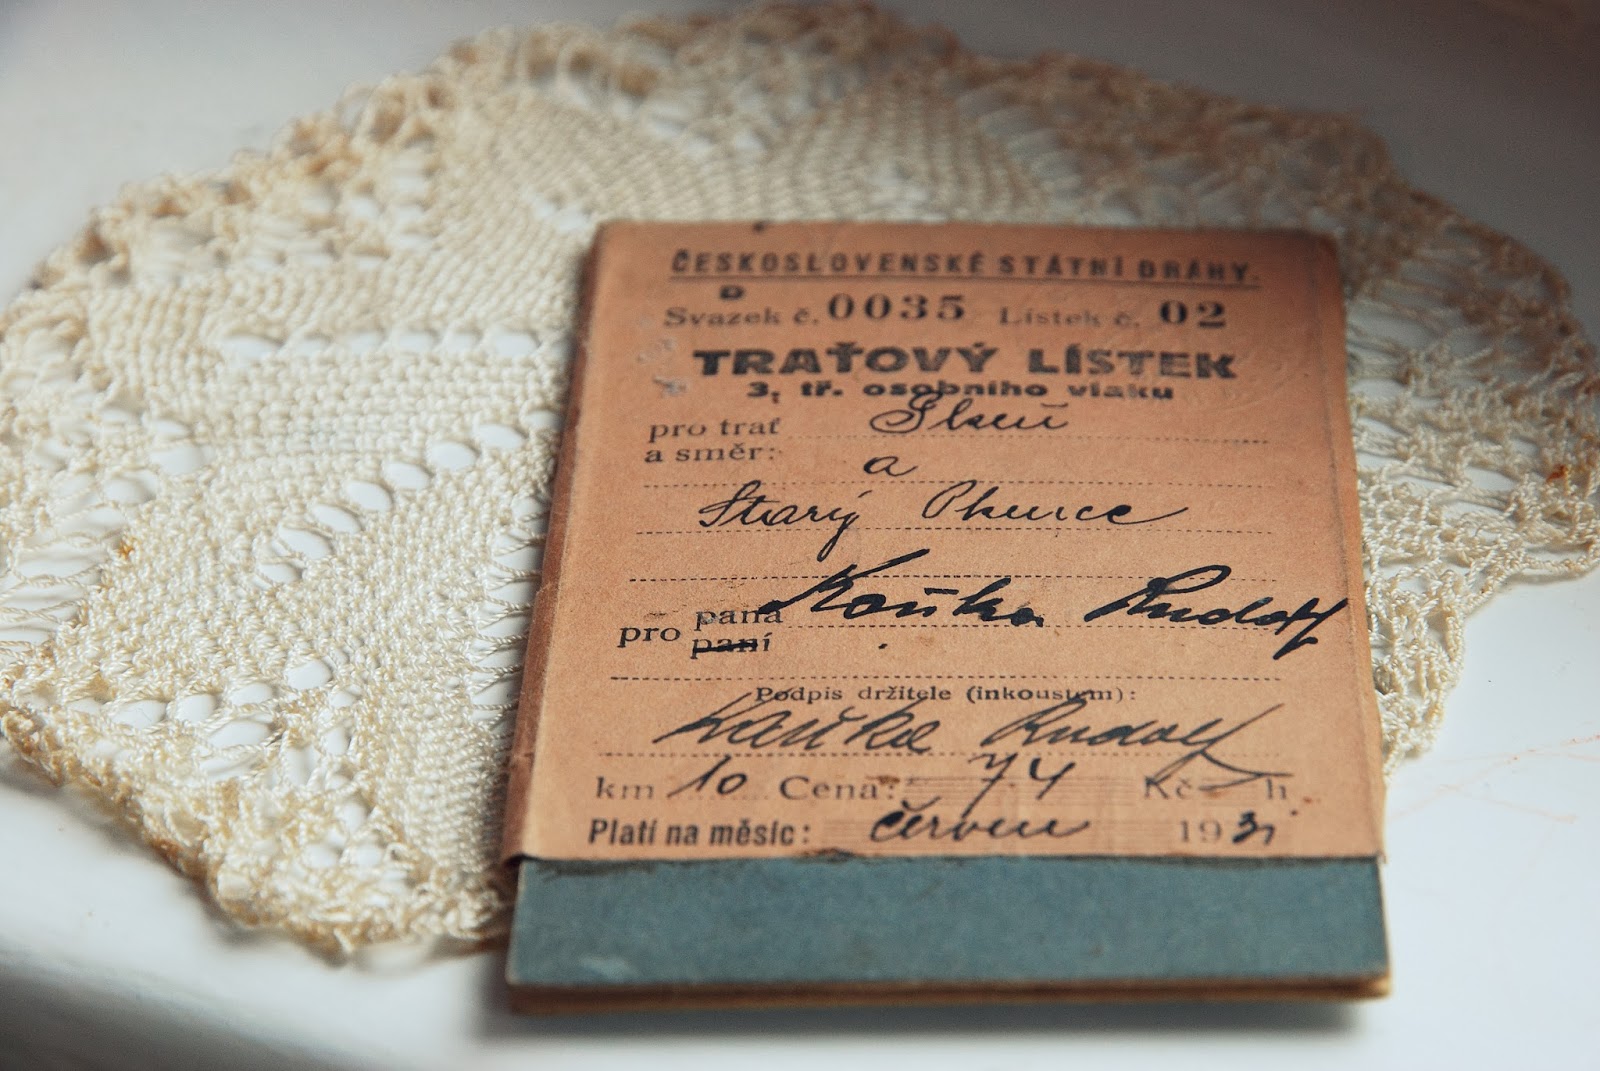 ČESKOSLOVENSKÉ STÁTNÍ DRÁHY.
D
Svazek č. 0035 Lístek č. 02
TRAŤOVÝ LÍSTEK
3. tř. osobního vlaku
pro trať Plzeň
a směr: a
Starý Plzenec
pro pana Kouřka Rudolf
paní
Podpis držitele (inkoustem):
Kouřka Rudolf
km 10 Cena: 74 Kč — h
Platí na měsíc: červen 1931